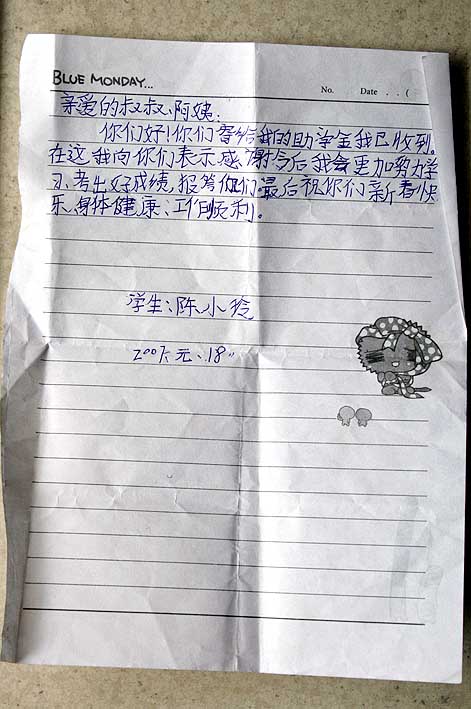 BLUE MONDAY...
No. Date . . (
亲爱的叔叔、阿姨:
你们好!你们寄给我的助学金我已收到。
在这我向你们表示感谢今后我会更加努力学
习、考出好成绩,报答你们。最后祝你们新春快
乐、身体健康、工作顺利。
学生:陈小玲
2007.元、18"